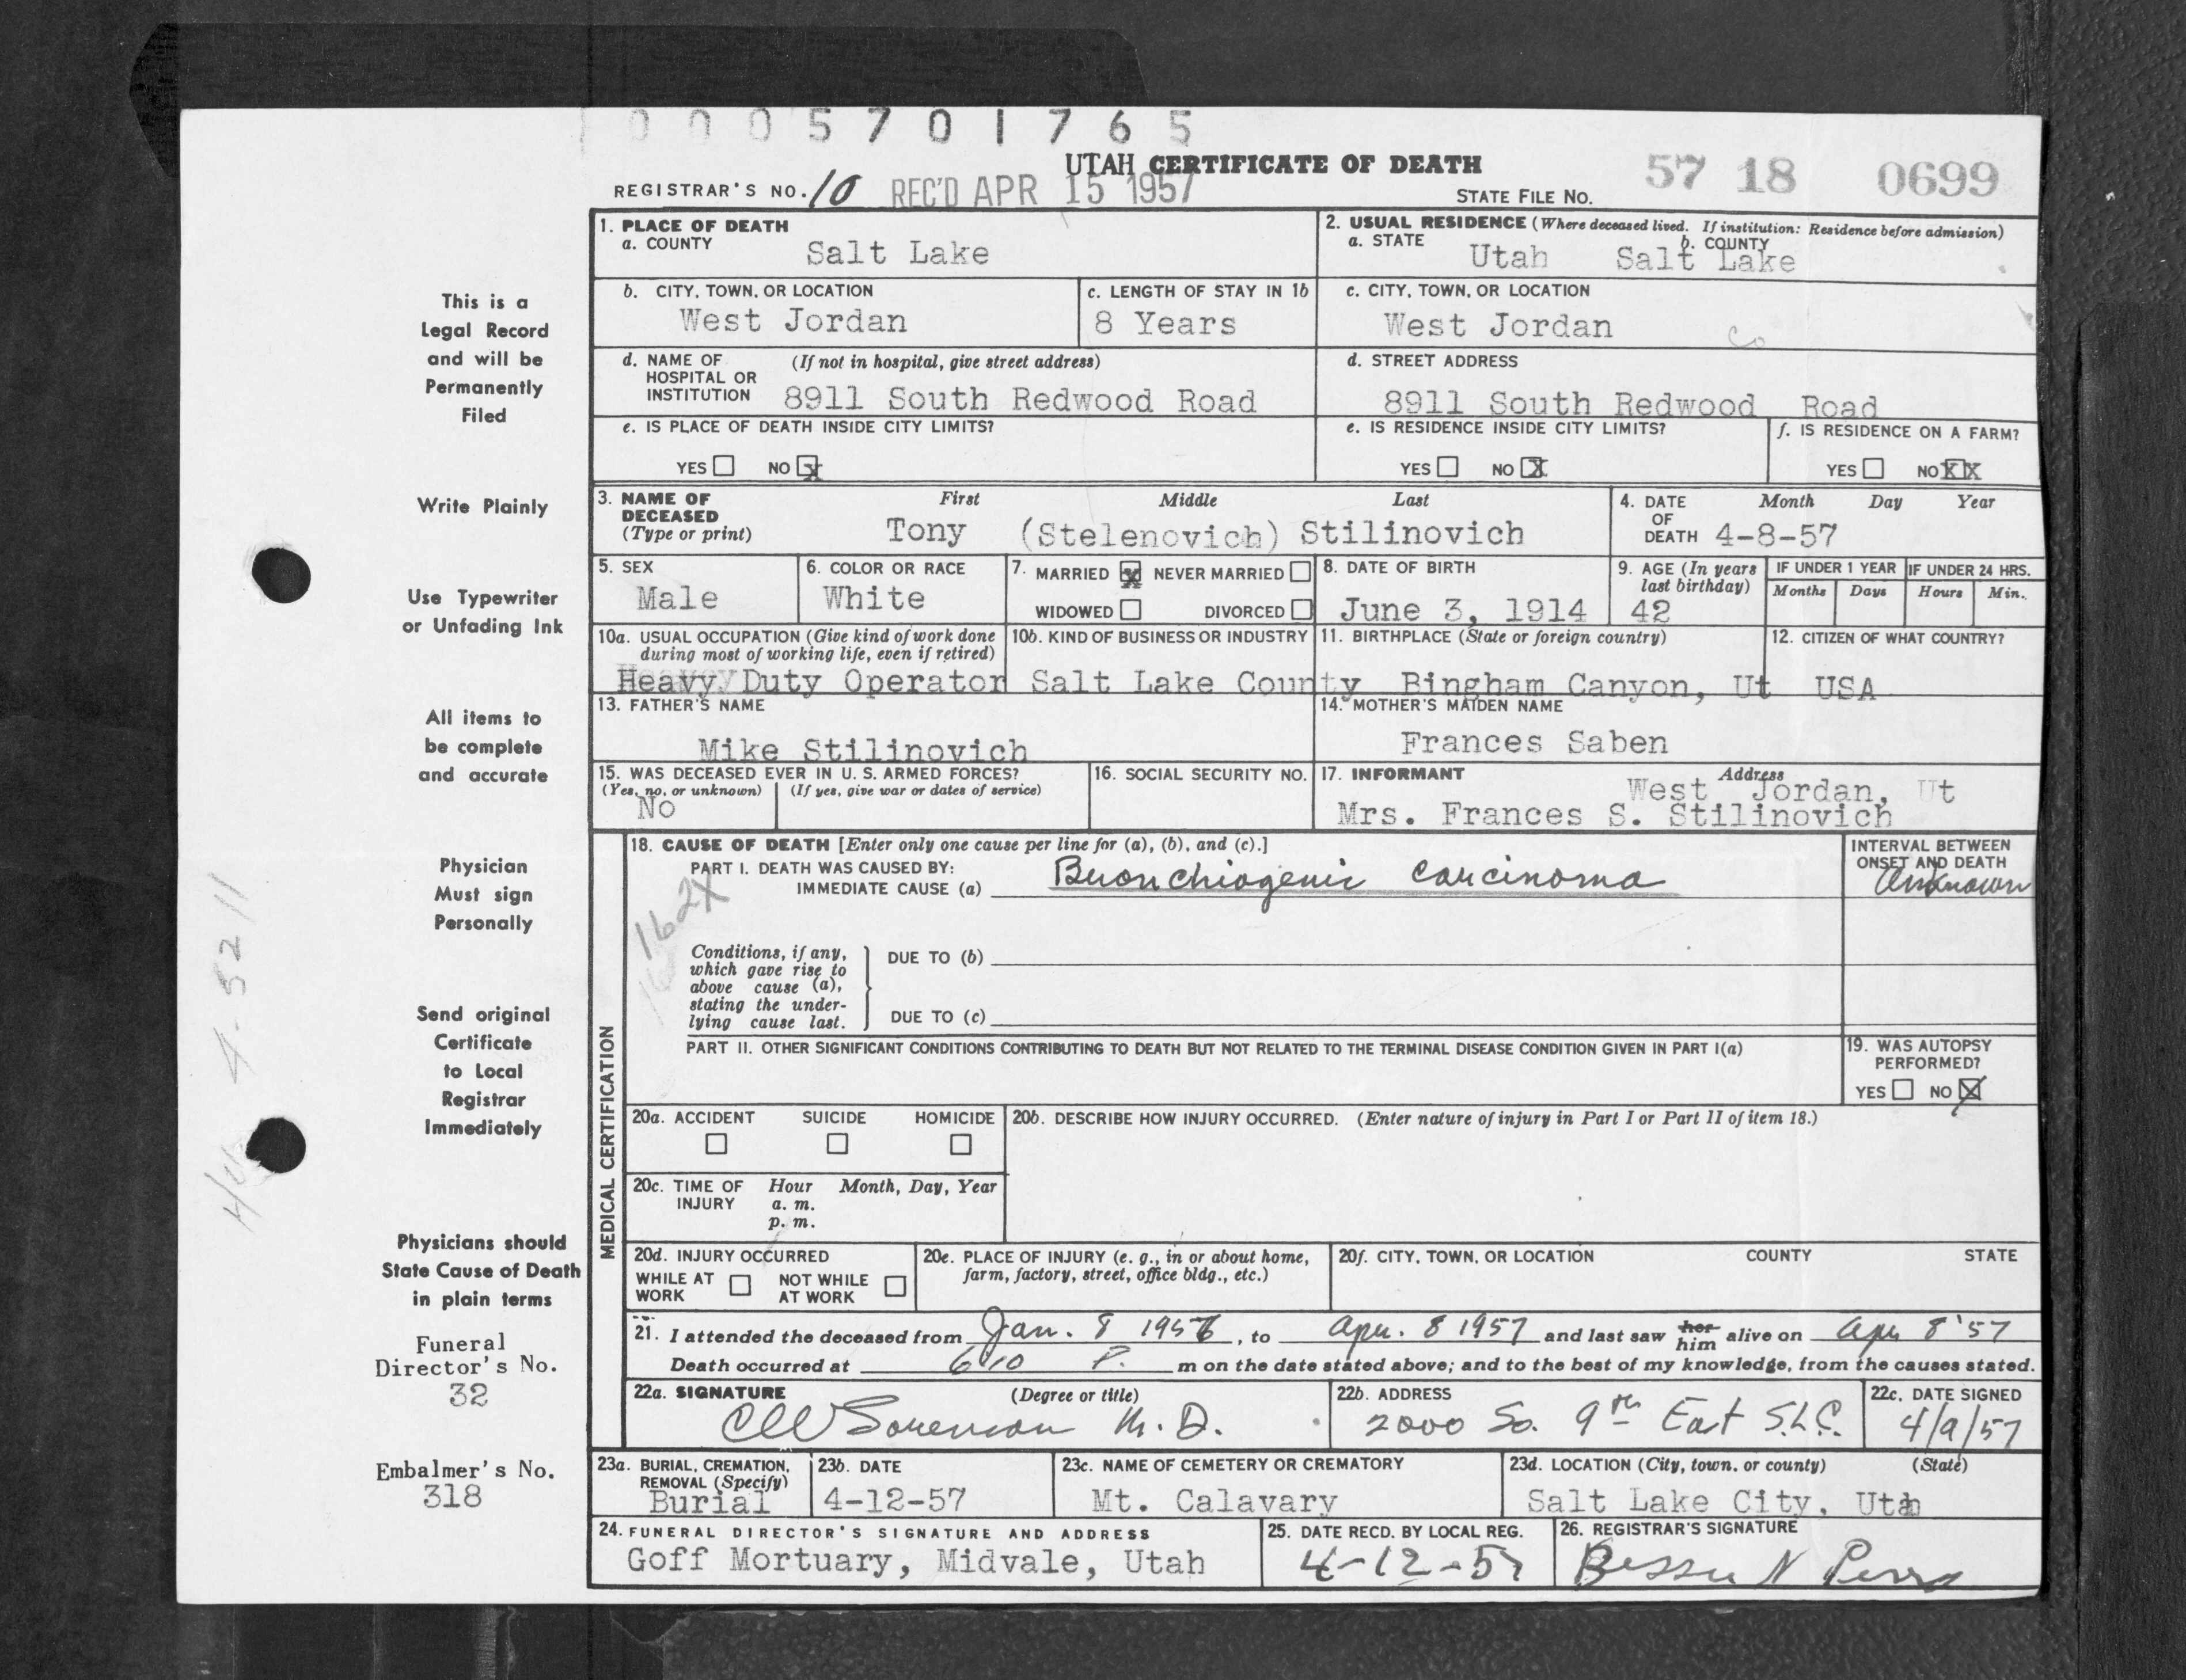 0005701765
UTAH CERTIFICATE OF DEATH
REGISTRAR'S NO. 10 REC'D APR 15 1957 STATE FILE No. 57 18 0699
1. PLACE OF DEATH
a. COUNTY Salt Lake
2. USUAL RESIDENCE (Where deceased lived. If institution: Residence before admission)
a. STATE Utah b. COUNTY Salt Lake
b. CITY, TOWN, OR LOCATION West Jordan
c. LENGTH OF STAY IN 1b 8 Years
c. CITY, TOWN, OR LOCATION West Jordan Co
d. NAME OF HOSPITAL OR INSTITUTION (If not in hospital, give street address)
8911 South Redwood Road
d. STREET ADDRESS
8911 South Redwood Road
e. IS PLACE OF DEATH INSIDE CITY LIMITS?
YES NO X
e. IS RESIDENCE INSIDE CITY LIMITS?
YES NO X
f. IS RESIDENCE ON A FARM?
YES NO XX
3. NAME OF DECEASED (Type or print) First Middle Last
Tony (Stelenovich) Stilinovich
4. DATE OF DEATH Month Day Year
4-8-57
5. SEX Male
6. COLOR OR RACE White
7. MARRIED X NEVER MARRIED
WIDOWED DIVORCED
8. DATE OF BIRTH June 3, 1914
9. AGE (In years last birthday) 42
IF UNDER 1 YEAR Months Days
IF UNDER 24 HRS. Hours Min.
10a. USUAL OCCUPATION (Give kind of work done during most of working life, even if retired)
Heavy Duty Operator
10b. KIND OF BUSINESS OR INDUSTRY
Salt Lake County
11. BIRTHPLACE (State or foreign country)
Bingham Canyon, Ut
12. CITIZEN OF WHAT COUNTRY?
USA
13. FATHER'S NAME
Mike Stilinovich
14. MOTHER'S MAIDEN NAME
Frances Saben
15. WAS DECEASED EVER IN U. S. ARMED FORCES?
(Yes, no, or unknown) (If yes, give war or dates of service)
No
16. SOCIAL SECURITY NO.
17. INFORMANT Address
West Jordan, Ut
Mrs. Frances S. Stilinovich
MEDICAL CERTIFICATION
18. CAUSE OF DEATH [Enter only one cause per line for (a), (b), and (c).]
PART I. DEATH WAS CAUSED BY:
IMMEDIATE CAUSE (a) Bronchiogenic carcinoma
INTERVAL BETWEEN ONSET AND DEATH
Unknown
162X
Conditions, if any, which gave rise to above cause (a), stating the underlying cause last.
DUE TO (b)
DUE TO (c)
PART II. OTHER SIGNIFICANT CONDITIONS CONTRIBUTING TO DEATH BUT NOT RELATED TO THE TERMINAL DISEASE CONDITION GIVEN IN PART I(a)
19. WAS AUTOPSY PERFORMED?
YES NO X
20a. ACCIDENT SUICIDE HOMICIDE
20b. DESCRIBE HOW INJURY OCCURRED. (Enter nature of injury in Part I or Part II of item 18.)
20c. TIME OF INJURY Hour Month, Day, Year
a. m.
p. m.
20d. INJURY OCCURRED
WHILE AT WORK NOT WHILE AT WORK
20e. PLACE OF INJURY (e. g., in or about home, farm, factory, street, office bldg., etc.)
20f. CITY, TOWN, OR LOCATION COUNTY STATE
21. I attended the deceased from Jan. 8 1956, to Apr. 8 1957 and last saw her him alive on Apr 8 '57
Death occurred at 6:10 P. m on the date stated above; and to the best of my knowledge, from the causes stated.
22a. SIGNATURE (Degree or title)
CW Sorenson M. D.
22b. ADDRESS
2000 So. 9th East S.L.C.
22c. DATE SIGNED
4/9/57
23a. BURIAL, CREMATION, REMOVAL (Specify)
Burial
23b. DATE
4-12-57
23c. NAME OF CEMETERY OR CREMATORY
Mt. Calavary
23d. LOCATION (City, town, or county) (State)
Salt Lake City, Utah
24. FUNERAL DIRECTOR'S SIGNATURE AND ADDRESS
Goff Mortuary, Midvale, Utah
25. DATE RECD. BY LOCAL REG.
4-12-57
26. REGISTRAR'S SIGNATURE
Bessie N
This is a
Legal Record
and will be
Permanently
Filed
Write Plainly
Use Typewriter
or Unfading Ink
All items to
be complete
and accurate
Physician
Must sign
Personally
Send original
Certificate
to Local
Registrar
Immediately
Physicians should
State Cause of Death
in plain terms
Funeral
Director's No.
32
Embalmer's No.
318